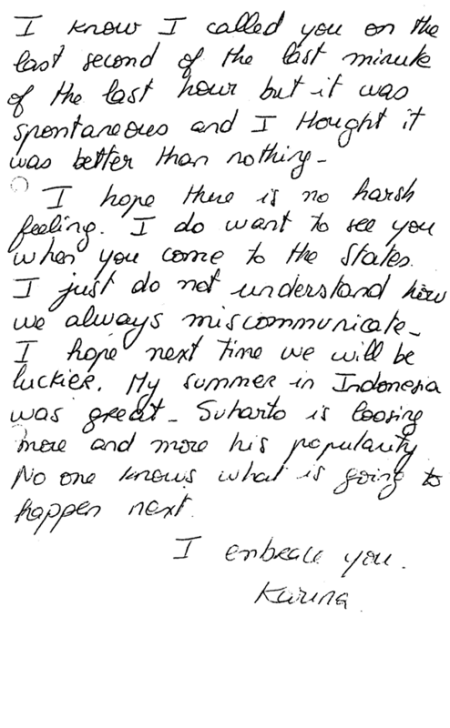 I know I called you on the
last second of the last minute
of the last hour but it was
spontaneous and I thought it
was better than nothing_
I hope there is no harsh
feeling. I do want to see you
when you come to the States.
I just do not understand how
we always miscommunicate_
I hope next time we will be
luckier. My summer in Indonesia
was great_ Suharto is loosing
more and more his popularity
No one knows what is going to
happen next.
I enbrace you.
Karina